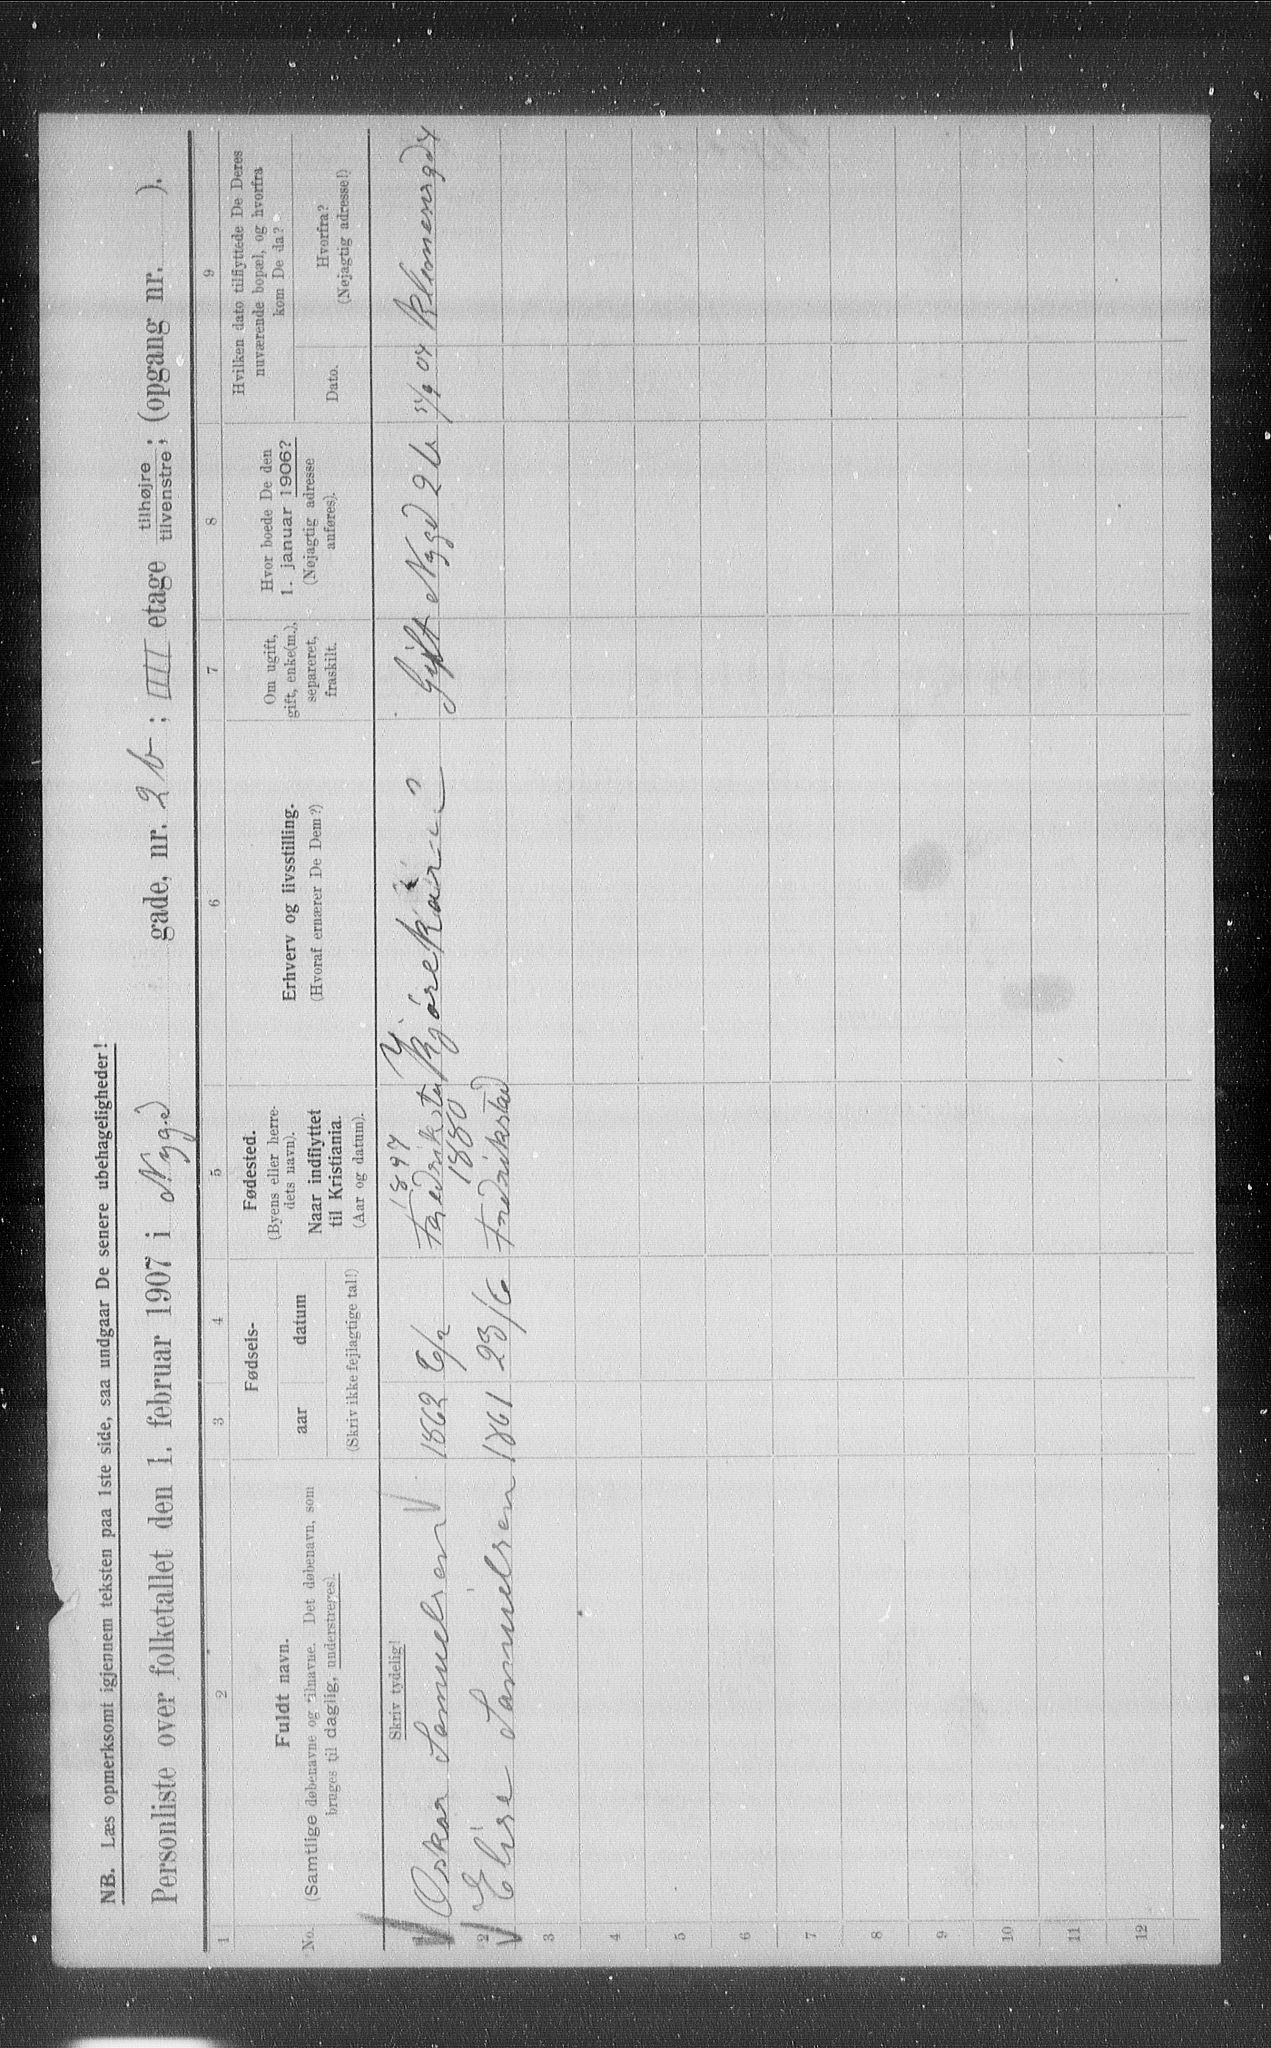 NB. Læs opmerksomt igjennem teksten paa 1ste side, saa undgaar De senere ubehageligheder!
Personliste over folketallet den 1. februar 1907 i Nygd gade, nr. 2 b ; III etage tilhøjre ; tilvenstre ; (opgang nr. ).
1 2 3 4 5 6 7 8 9
No.
Fuldt navn.
(Samtlige døbenavne og tilnavne. Det døbenavn, som
bruges til daglig, understreges).
Fødsels-
aar datum
(Skriv ikke fejlagtige tal!)
Fødested.
(Byens eller herre-
dets navn).
Naar indflyttet
til Kristiania.
(Aar og datum).
Erhverv og livsstilling.
(Hvoraf ernærer De Dem?)
Om ugift,
gift, enke(m.),
separeret,
fraskilt.
Hvor boede De den
1. januar 1906?
(Nøjagtig adresse
anføres).
Hvilken dato tilflyttede De Deres
nuværende bopæl, og hvorfra
kom De da?
Dato.
Hvorfra?
(Nøjagtig adresse!)
Skriv tydelig!
1897
1 Oskar Samuelsen 1862 6/2 Fredrikstad Kjørekar Gift Nygd 2 b
1880
2 Elise Samuelsen 1861 23/6 Fredrikstad
3
4
5
6
7
8
9
10
11
12